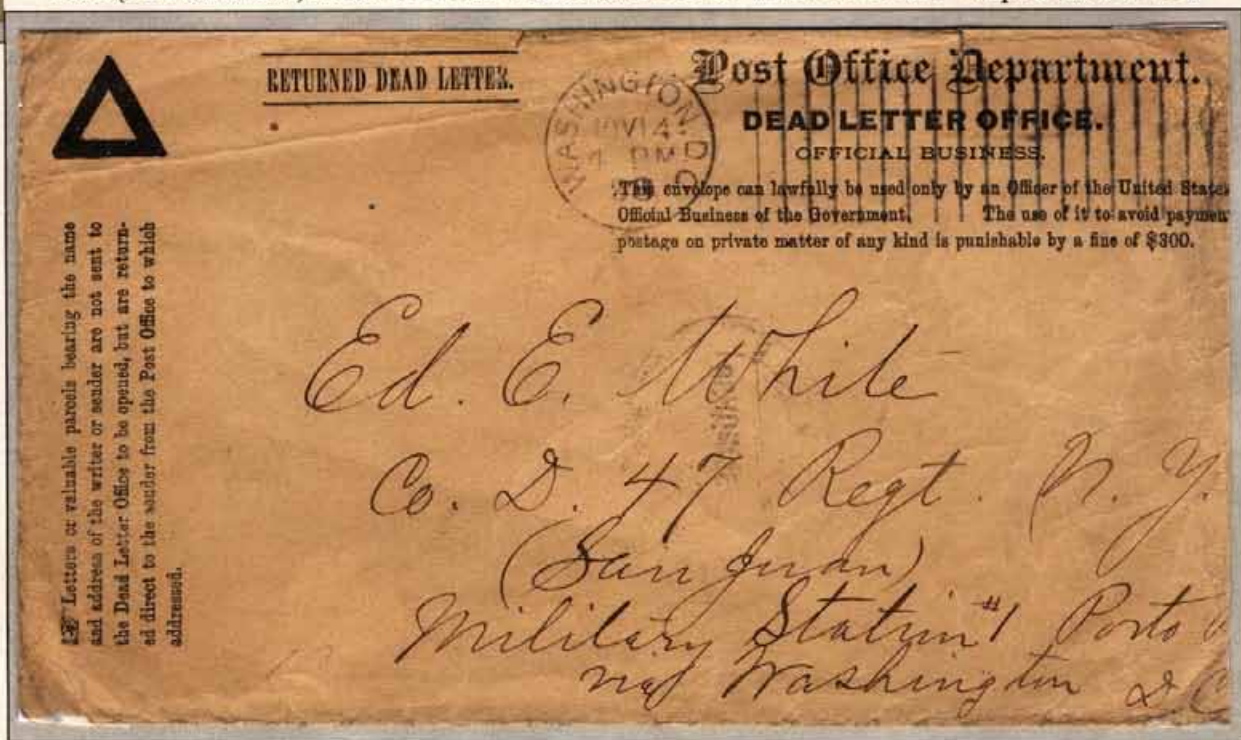 RETURNED DEAD LETTER.
Post Office Department.
DEAD LETTER OFFICE.
OFFICIAL BUSINESS.
This envelope can lawfully be used only by an Officer of the United States
Official Business of the Government. The use of it to avoid paymen
postage on private matter of any kind is punishable by a fine of $300.
WASHINGTON, D.C.
NOV 14
4 PM
Letters or valuable parcels bearing the name
and address of the writer or sender are not sent to
the Dead Letter Office to be opened, but are return-
ed direct to the sender from the Post Office to which
addressed.
Ed. E. White
Co. D. 47 Regt. N. Y.
(San Juan)
Military Station #1 Porto
via Washington D C